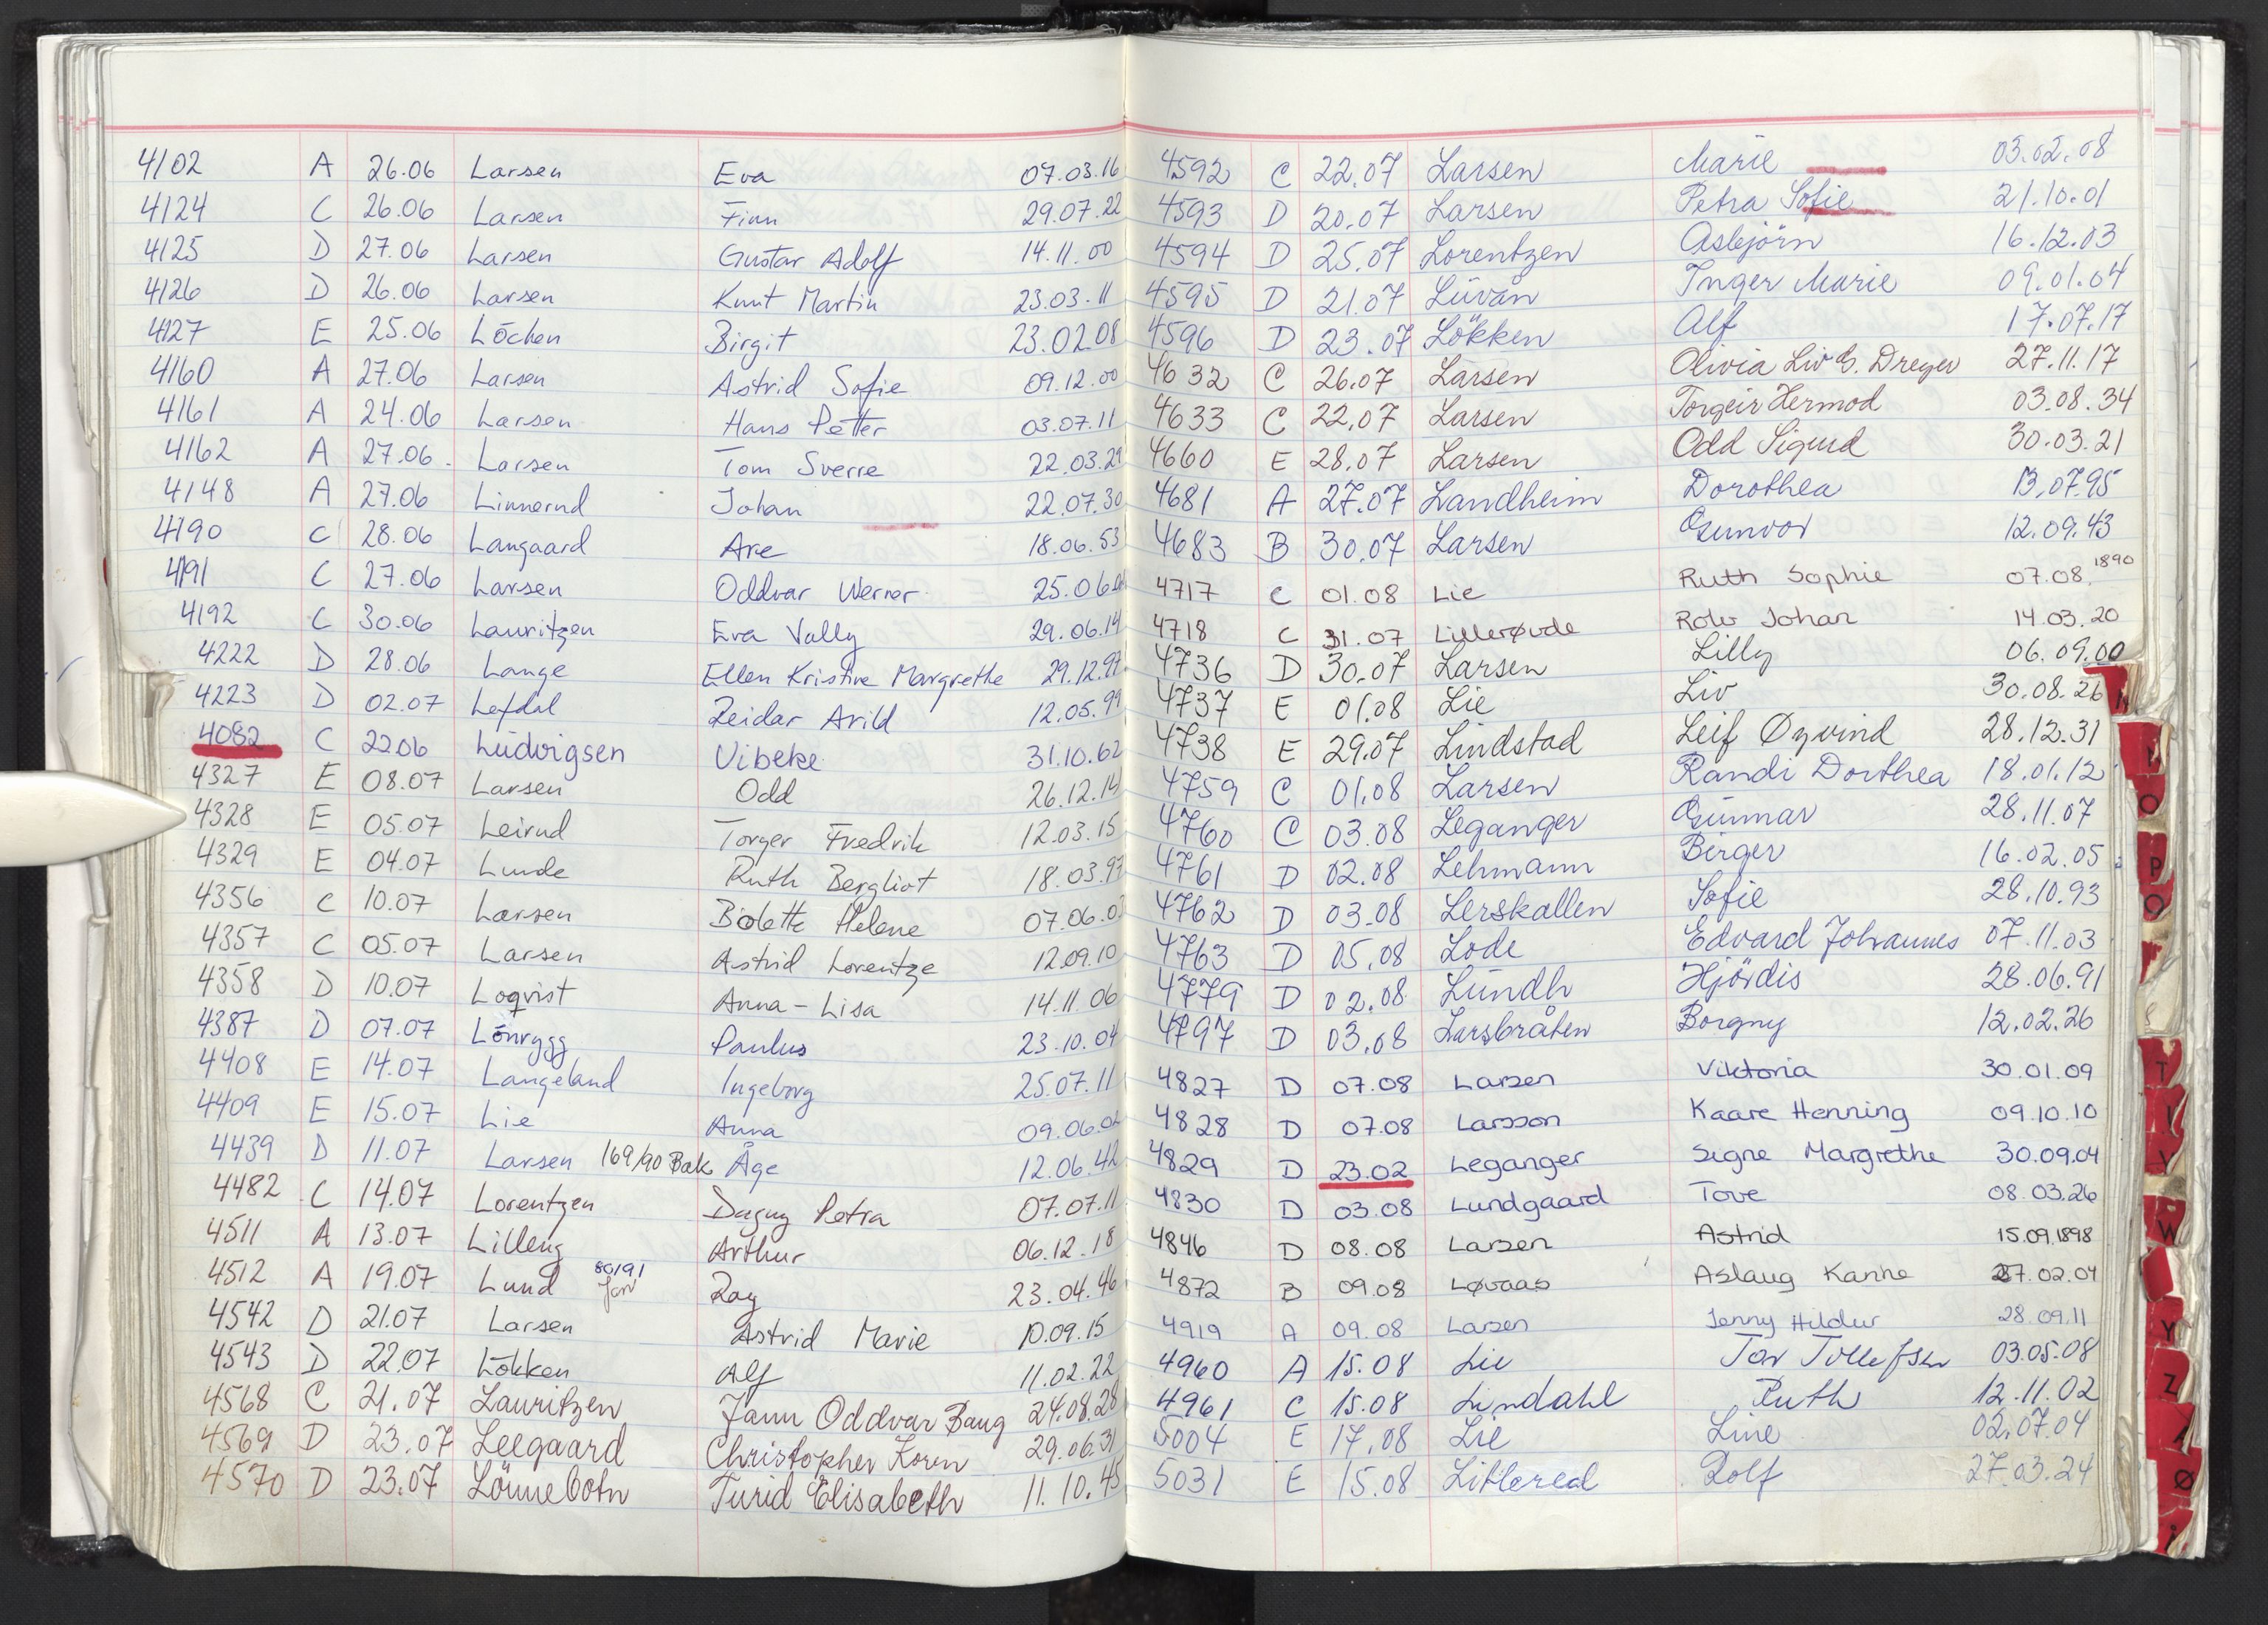 4102 A 26.06 Larsen Eva 07.03.16
4124 C 26.06 Larsen Finn 29.07.22
4125 D 27.06 Larsen Gustav Adolf 14.11.00
4126 D 26.06 Larsen Knut Martin 23.03.11
4127 E 25.06 Löchen Birgit 23.02.08
4160 A 27.06 Larsen Astrid Sofie 09.12.00
4161 A 24.06 Larsen Hans Petter 03.07.11
4162 A 27.06 Larsen Tom Sverre 22.03.29
4148 A 27.06 Linnerud Johan 22.07.30
4190 C 28.06 Langaard Are 18.06.53
4191 C 27.06 Larsen Oddvar Werner 25.06
4192 C 30.06 Lauritzen Eva Vally 29.06.14
4222 D 28.06 Lange Ellen Kristine Margrethe 29.12.97
4223 D 02.07 Lefdal Reidar Arild 12.05.99
4082 C 22.06 Ludvigsen Vibeke 31.10.62
4327 E 08.07 Larsen Odd 26.12.14
4328 E 05.07 Leirud Torger Fredrik 12.03.15
4329 E 04.07 Lunde Ruth Bergliot 18.03.97
4356 C 10.07 Larsen Bolette Helene 07.06.03
4357 C 05.07 Larsen Astrid Lorentze 12.09.10
4358 D 10.07 Loqvist Anna-Lisa 14.11.06
4387 D 07.07 Lönrygg Paulus 23.10.04
4408 E 14.07 Langeland Ingeborg 25.07.11
4409 E 15.07 Lie Anna 09.06.02
4439 D 11.07 Larsen 169/90 Bak Åge 12.06.42
4482 C 14.07 Lorentzen Dagny Petra 07.07.11
4511 A 13.07 Lilleng Arthur 06.12.18
4512 A 19.07 Lund 80/91 Jan Roy 23.04.46
4542 D 21.07 Larsen Astrid Marie 10.09.15
4543 D 22.07 Lökken Alf 11.02.22
4568 C 21.07 Lauritzen Jann Oddvar Bang 24.08.28
4569 D 23.07 Leegaard Christopher Koren 29.06.31
4570 D 23.07 Lönnebotn Turid Elisabeth 11.10.45
4592 C 22.07 Larsen Marie 03.02.08
4593 D 20.07 Larsen Petra Sofie 21.10.01
4594 D 25.07 Lorentzen Asbjörn 16.12.03
4595 D 21.07 Lüvån Inger Marie 09.01.04
4596 D 23.07 Lökken Alf 17.07.17
4632 C 26.07 Larsen Olivia Liv G. Dreyer 27.11.17
4633 C 22.07 Larsen Torgeir Hermod 03.08.34
4660 E 28.07 Larsen Odd Sigurd 30.03.21
4681 A 27.07 Landheim Dorothea 13.07.95
4683 B 30.07 Larsen Gunvor 12.09.43
4717 C 01.08 Lie Ruth Sophie 07.08.1890
4718 C 31.07 Lillerøvde Rolv Johan 14.03.20
4736 D 30.07 Larsen Lilly 06.09.00
4737 E 01.08 Lie Liv 30.08.26
4738 E 29.07 Lindstad Leif Øyvind 28.12.31
4759 C 01.08 Larsen Randi Dorthea 18.01.12
4760 C 03.08 Leganger Gunnar 28.11.07
4761 D 02.08 Lehmann Birger 16.02.05
4762 D 03.08 Lerskallen Sofie 28.10.93
4763 D 05.08 Lode Edvard Johannes 07.11.03
4779 D 02.08 Lundh Hjördis 28.06.91
4797 D 03.08 Larsbråten Borgny 12.02.26
4827 D 07.08 Larsen Viktoria 30.01.09
4828 D 07.08 Larsson Kaare Henning 09.10.10
4829 D 23.02 Leganger Signe Margrethe 30.09.04
4830 D 03.08 Lundgaard Tove 08.03.26
4846 D 08.08 Larsen Astrid 15.09.1898
4872 B 09.08 Løvaas Aslaug Kanhe 27.02.04
4919 A 09.08 Larsen Jenny Hildur 28.09.11
4960 A 15.08 Lie Tor Tollefsen 03.05.08
4961 C 15.08 Lindahl Ruth 12.11.02
5004 E 17.08 Lie Line 02.07.04
5031 E 15.08 Littlereal Rolf 27.03.24
O
P
Q
T
Y
W
Y
Z
Ø